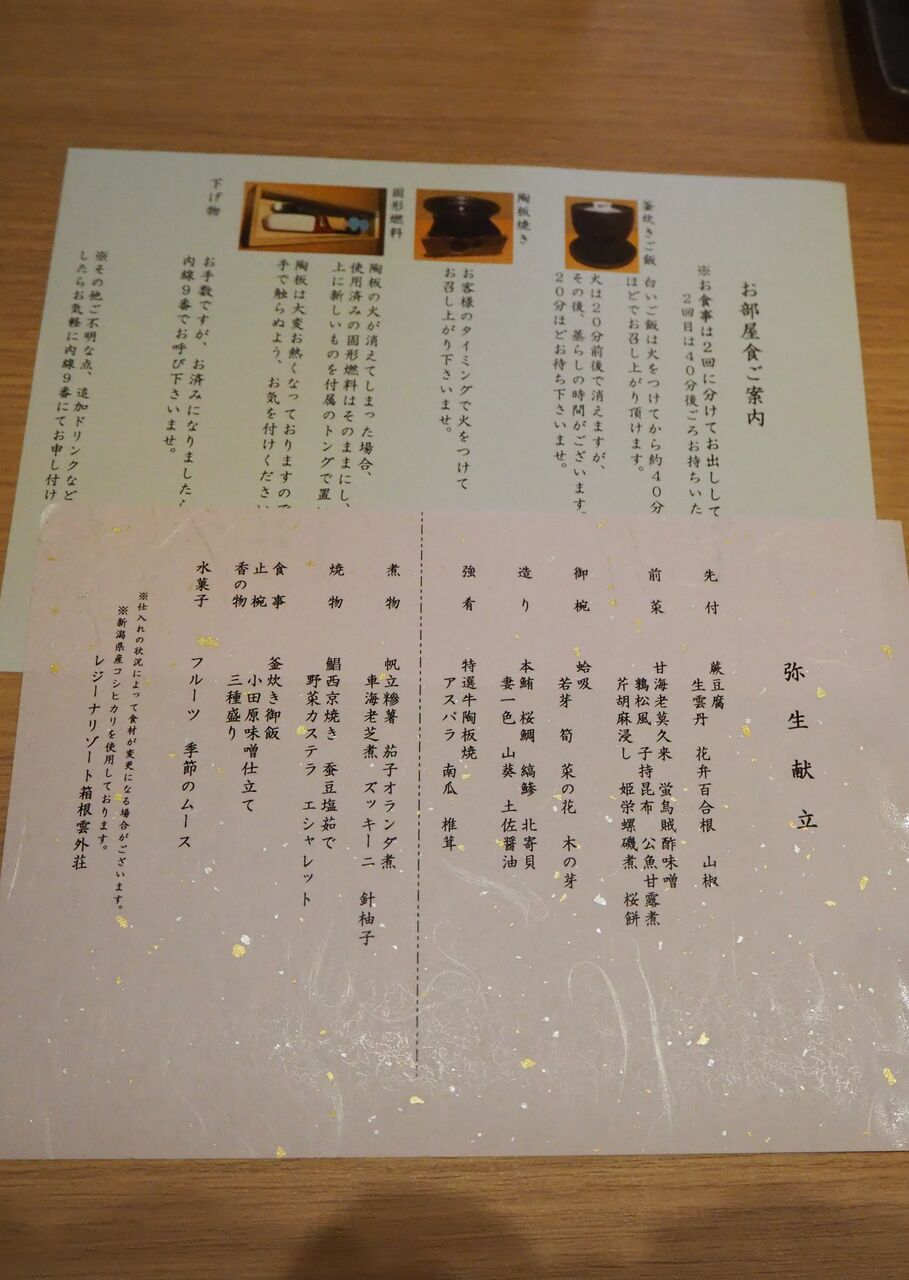 お部屋食ご案内
※お食事は２回に分けてお出しして
２回目は４０分後ごろお持ちいた
釜炊きご飯
白いご飯は火をつけてから約４０分
ほどでお召し上がり頂けます。
火は２０分前後で消えますが、
その後、蒸らしの時間がございます。
２０分ほどお待ち下さいませ。
陶板焼き
お客様のタイミングで火をつけて
お召し上がり下さいませ。
固形燃料
陶板の火が消えてしまった場合、
使用済みの固形燃料はそのままにし、
上に新しいものを付属のトングで置い
陶板は大変お熱くなっておりますので
手で触らぬよう、お気を付けください
下げ物
お手数ですが、お済みになりましたら
内線９番でお呼び下さいませ。
※その他ご不明な点、追加ドリンクなど
したらお気軽に内線９番にてお申し付け
弥生献立
先付
蕨豆腐
生雲丹 花弁百合根 山椒
前菜
甘海老萬久来 蛍烏賊酢味噌
鶏松風 子持昆布 公魚甘露煮
芹胡麻浸し 姫栄螺磯煮 桜餅
御椀
蛤吸
若芽 筍 菜の花 木の芽
造り
本鮪 桜鯛 縞鯵 北寄貝
妻一色 山葵 土佐醤油
強肴
特選牛陶板焼
アスパラ 南瓜 椎茸
煮物
帆立糝薯 茄子オランダ煮
車海老芝煮 ズッキーニ 針柚子
焼物
鯧西京焼き 蚕豆塩茹で
野菜カステラ エシャレット
食事
釜炊き御飯
止椀
小田原味噌仕立て
香の物
三種盛り
水菓子
フルーツ 季節のムース
※仕入れの状況によって食材が変更になる場合がございます。
※新潟県産コシヒカリを使用しております。
レジーナリゾート箱根雲外荘